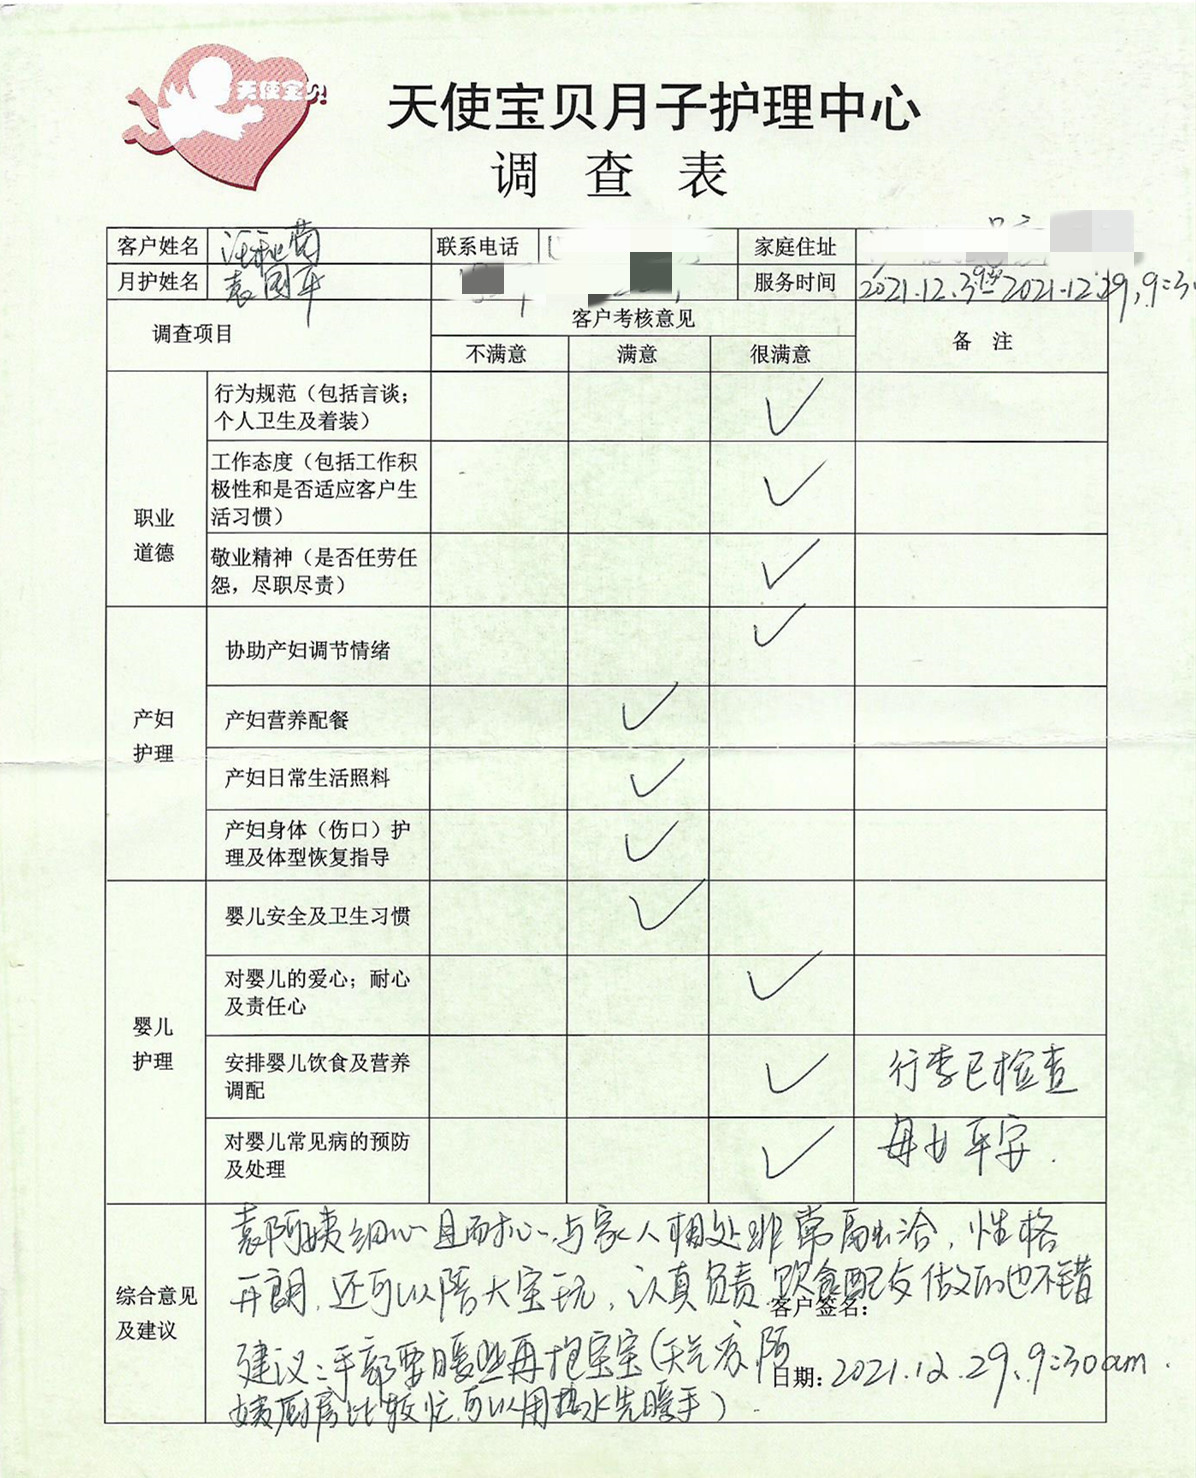 天使宝贝
天使宝贝月子护理中心
调 查 表
客户姓名 汪 菊 联系电话 家庭住址
月护姓名 袁国平 服务时间 2021.12.3 2021.12.29,9:30
调查项目 客户考核意见 备 注
不满意 满意 很满意
职业
道德
行为规范（包括言谈；
个人卫生及着装） ✓
工作态度（包括工作积
极性和是否适应客户生
活习惯） ✓
敬业精神（是否任劳任
怨，尽职尽责） ✓
产妇
护理
协助产妇调节情绪 ✓
产妇营养配餐 ✓
产妇日常生活照料 ✓
产妇身体（伤口）护
理及体型恢复指导 ✓
婴儿
护理
婴儿安全及卫生习惯 ✓
对婴儿的爱心；耐心
及责任心 ✓
安排婴儿饮食及营养
调配 ✓ 行李已检查
对婴儿常见病的预防
及处理 ✓ 母女平安.
综合意见
及建议
袁阿姨细心且耐心、与家人相处非常融洽，性格
开朗，还可以陪大宝玩，认真负责 饮食配方做的也不错
客户签名：
建议：手部要暖些再抱宝宝（天气凉，阿
日期：2021.12.29、9:30am.
姨厨房比较忙，可以用热水先暖手）